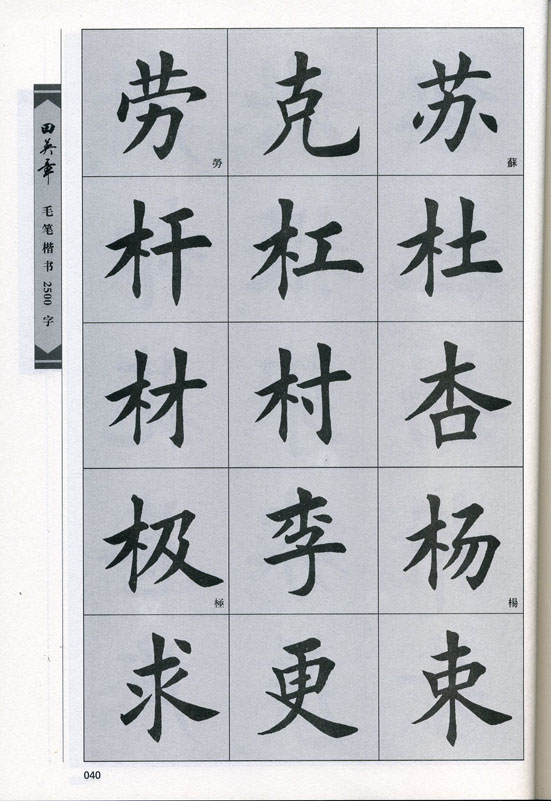 田英章 毛笔楷书2500字
苏 克 劳
蘇 勞
杜 杠 杆
杏 村 材
杨 李 极
楊 極
束 更 求
040